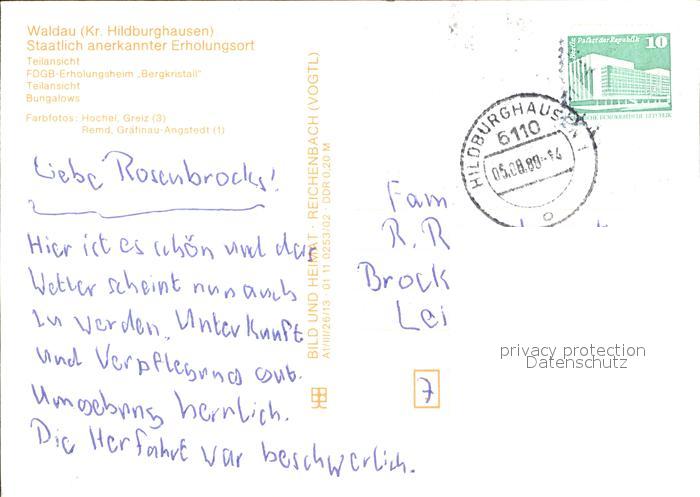 Waldau (Kr. Hildburghausen)
Staatlich anerkannter Erholungsort
Teilansicht
FDGB-Erholungsheim „Bergkristall"
Teilansicht
Bungalows
Farbfotos: Hochel, Greiz (3)
Remd, Gräfinau-Angstedt (1)
Liebe Rosenbrocks!
Hier ist es schön und das
Wetter scheint nun auch
zu werden. Unterkunft
und Verpflegung gut.
Umgebung herrlich.
Die Herfahrt war beschwerlich.
BILD UND HEIMAT · REICHENBACH (VOGTL)
A1/III/26/13 · 01 11 0253/02 · DDR 0,20 M
Palast der Republik
10
HILDBURGHAUSEN 1
6110
Fam
R. R
Brock
Lei
7
privacy protection
Datenschutz